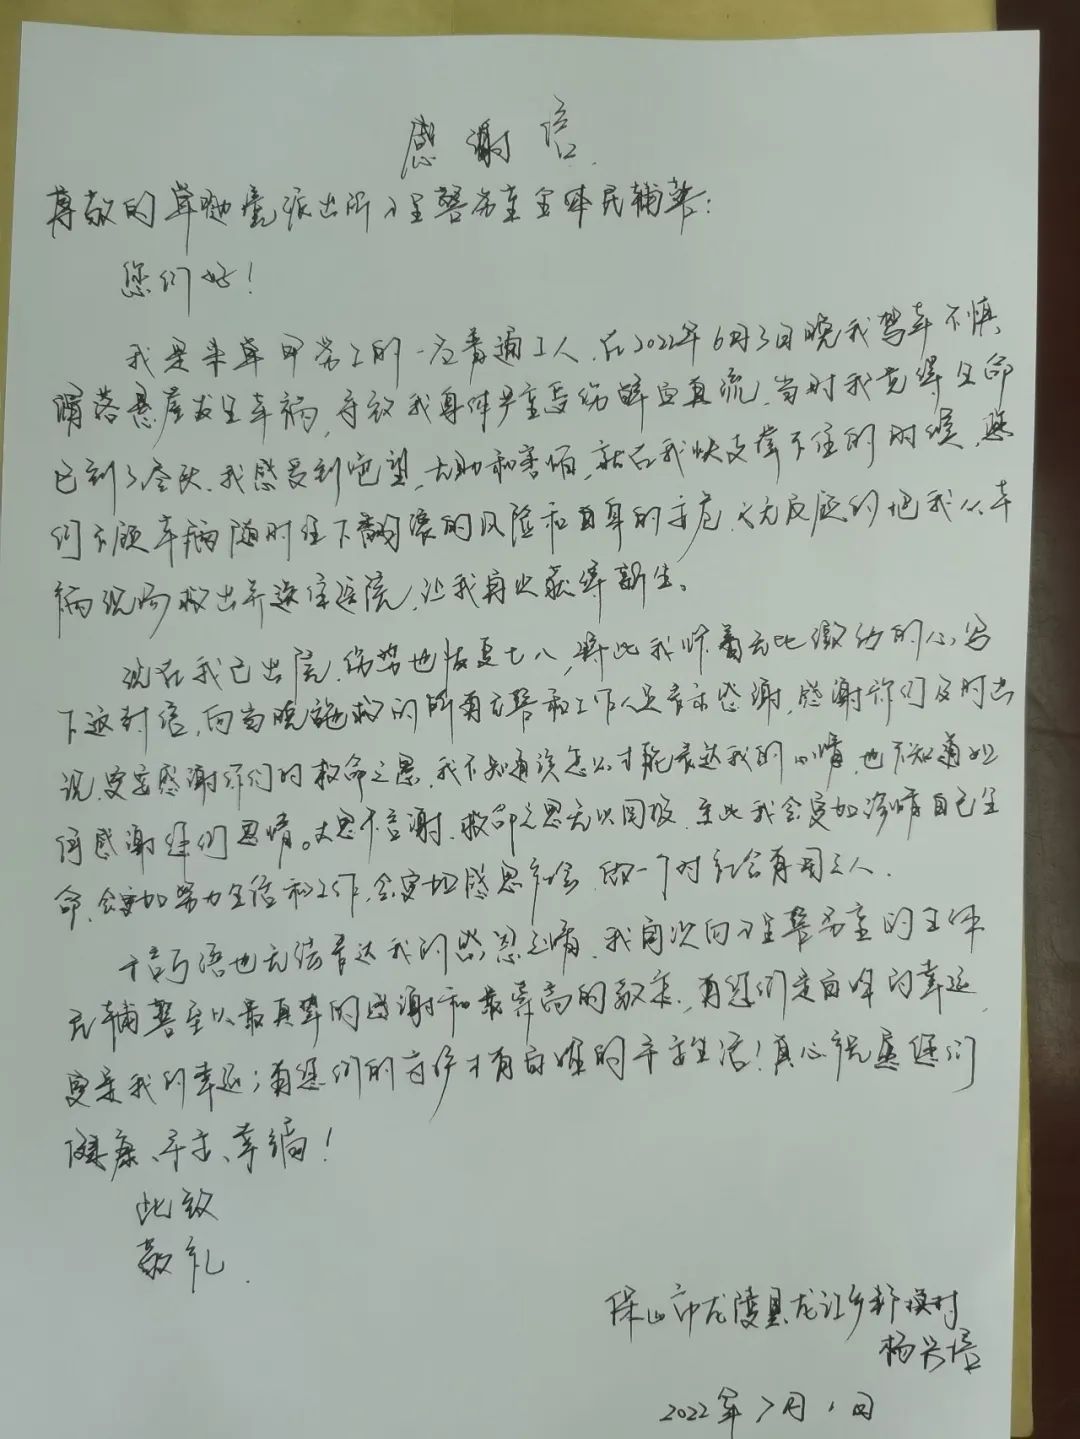 感谢信
尊敬的单勐叠派出所刁呈警务室全体民辅警：
您们好！
我是来单甲劳工的一位普通工人，在2022年6月3日晚我驾车不慎
滑落悬崖发生车祸，导致我身体严重受伤鲜血直流，当时我觉得生命
已到了尽头，我感受到绝望、无助和害怕，就在我快支撑不住的时候，您
们不顾车辆随时往下翻滚的风险和自身的安危，义无反顾的把我从车
祸现场救出并送往医院，让我再次获得新生。
现在我已出院，伤势也恢复七八，特此我怀着无比激动的心写
下这封信，向当晚施救的所有民警和工作人员表示感谢，感谢你们及时出
现，更要感谢你们的救命之恩，我不知道该怎么才能表达我的心情，也不知道如
何感谢您们恩情。大恩不言谢，救命之恩无以回报，至此我会更加珍惜自己生
命，会更加努力生活和工作，会更加感恩社会，做一个对社会有用之人。
千言万语也无法表达我的感恩之情，我再次向刁呈警务室的全体
民辅警至以最真挚的感谢和最崇高的敬意，有您们是百姓的幸运，
更是我的幸运；有您们的守护才有百姓的平安生活！真心祝愿您们
健康、平安、幸福！
此致
敬礼
保山市龙陵县龙江乡 村
杨兴信
2022年7月1日